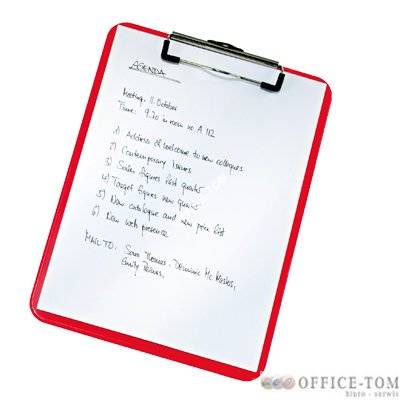 AGENDA
Meeting: 11. October
Time: 9.20 in room no A 112
1) Address of welcome to new collegues
2) Contemporary Issues
3) Sales figures last quarter
4) Target figures new quarter
5) New catalogue and new price list
6) New web presence
MAIL TO: Thomas, Dominic Mc
Emily
OFFICE-TOM
biuro - serwis